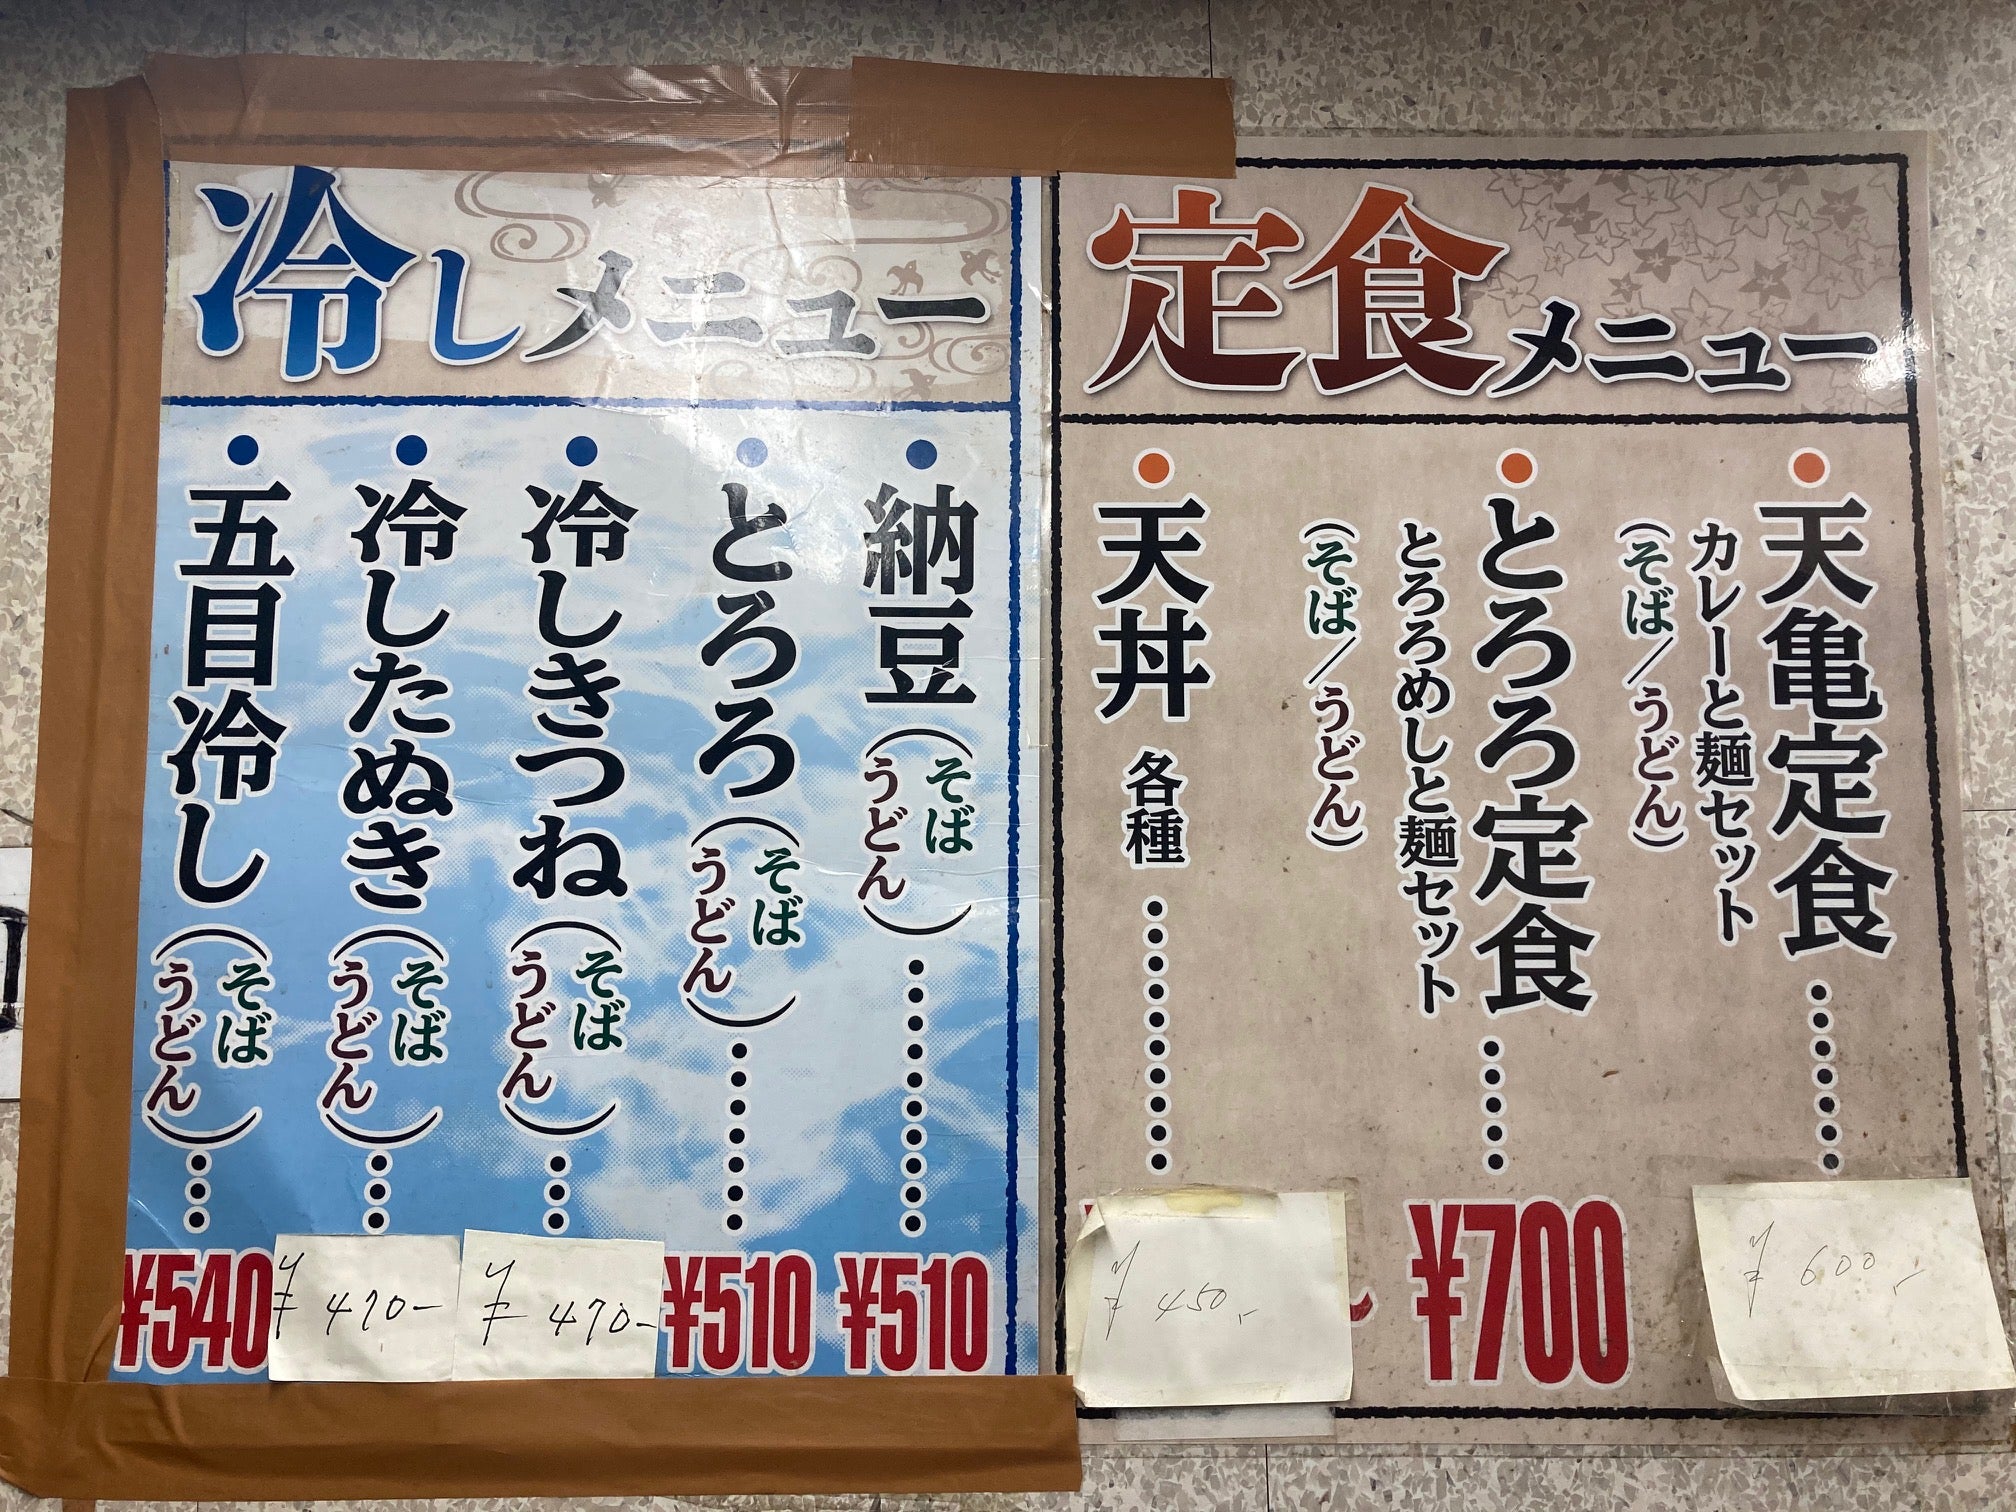 冷しメニュー
納豆(そば うどん)………¥510
とろろ(そば うどん)………¥510
冷しきつね(そば うどん)…¥470-
冷したぬき(そば うどん)…¥470-
五目冷し(そば うどん)…¥540
定食メニュー
天亀定食………¥600,-
カレーと麺セット
(そば/うどん)
とろろ定食……¥700
とろろめしと麺セット
(そば/うどん)
天丼 各種…………¥450,-